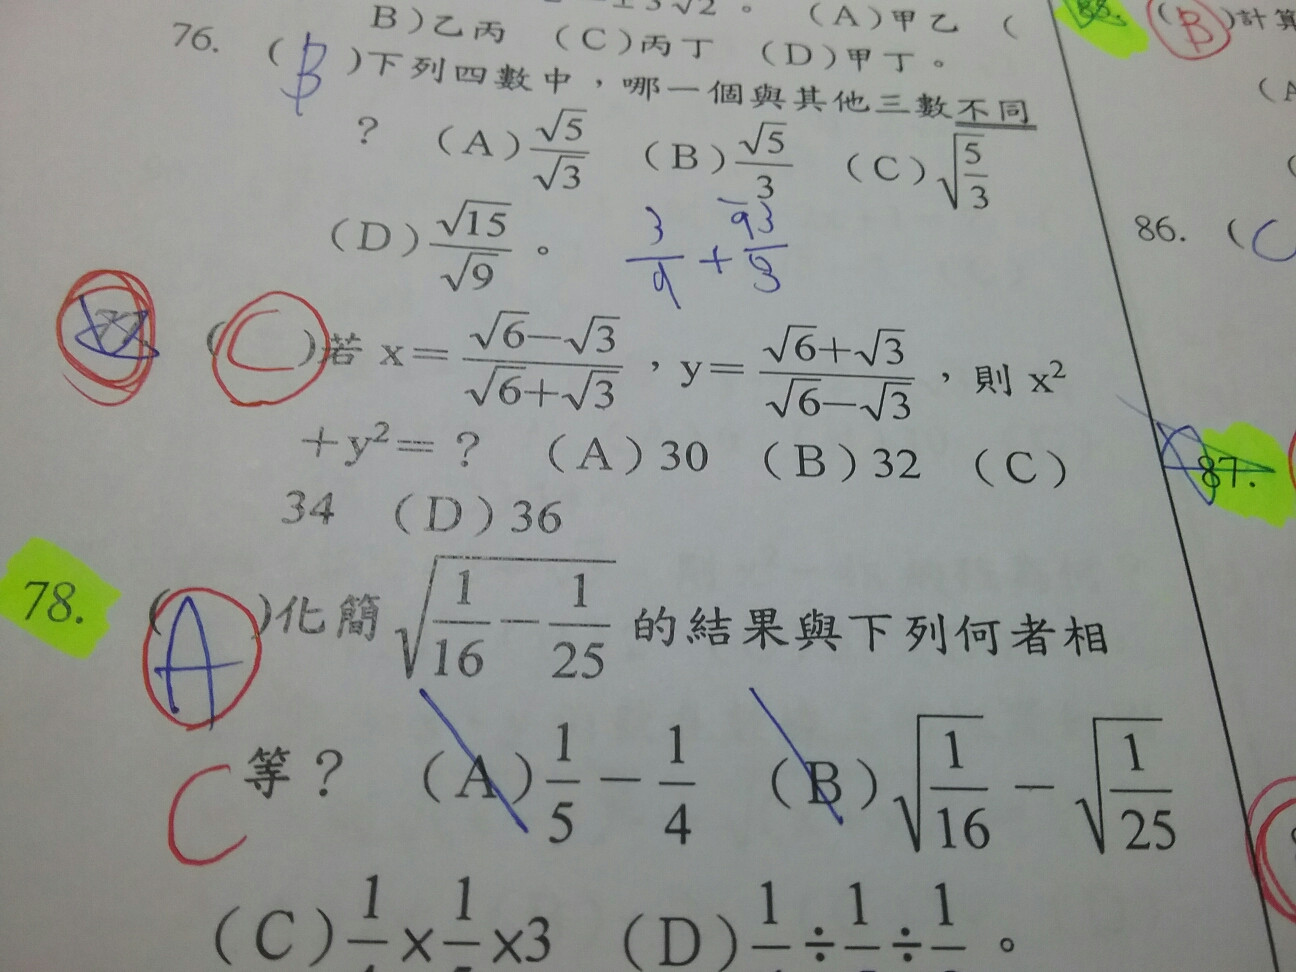 ±3√2。 (A)甲乙 (
B)乙丙 (C)丙丁 (D)甲丁。
76. (B)下列四數中，哪一個與其他三數不同
? (A)√5/√3 (B)√5/3 (C)√(5/3)
(D)√15/√9。
3/9 + 93/9
(C)若 x=(√6−√3)/(√6+√3)，y=(√6+√3)/(√6−√3)，則 x²
+y²=? (A)30 (B)32 (C)
34 (D)36
78. (A)化簡√(1/16−1/25)的結果與下列何者相
C
等? (A)1/5−1/4 (B)√(1/16)−√(1/25)
(C) ×3 (D) ÷ ÷ 。
88. (B)計算
(A
86. (C
87.